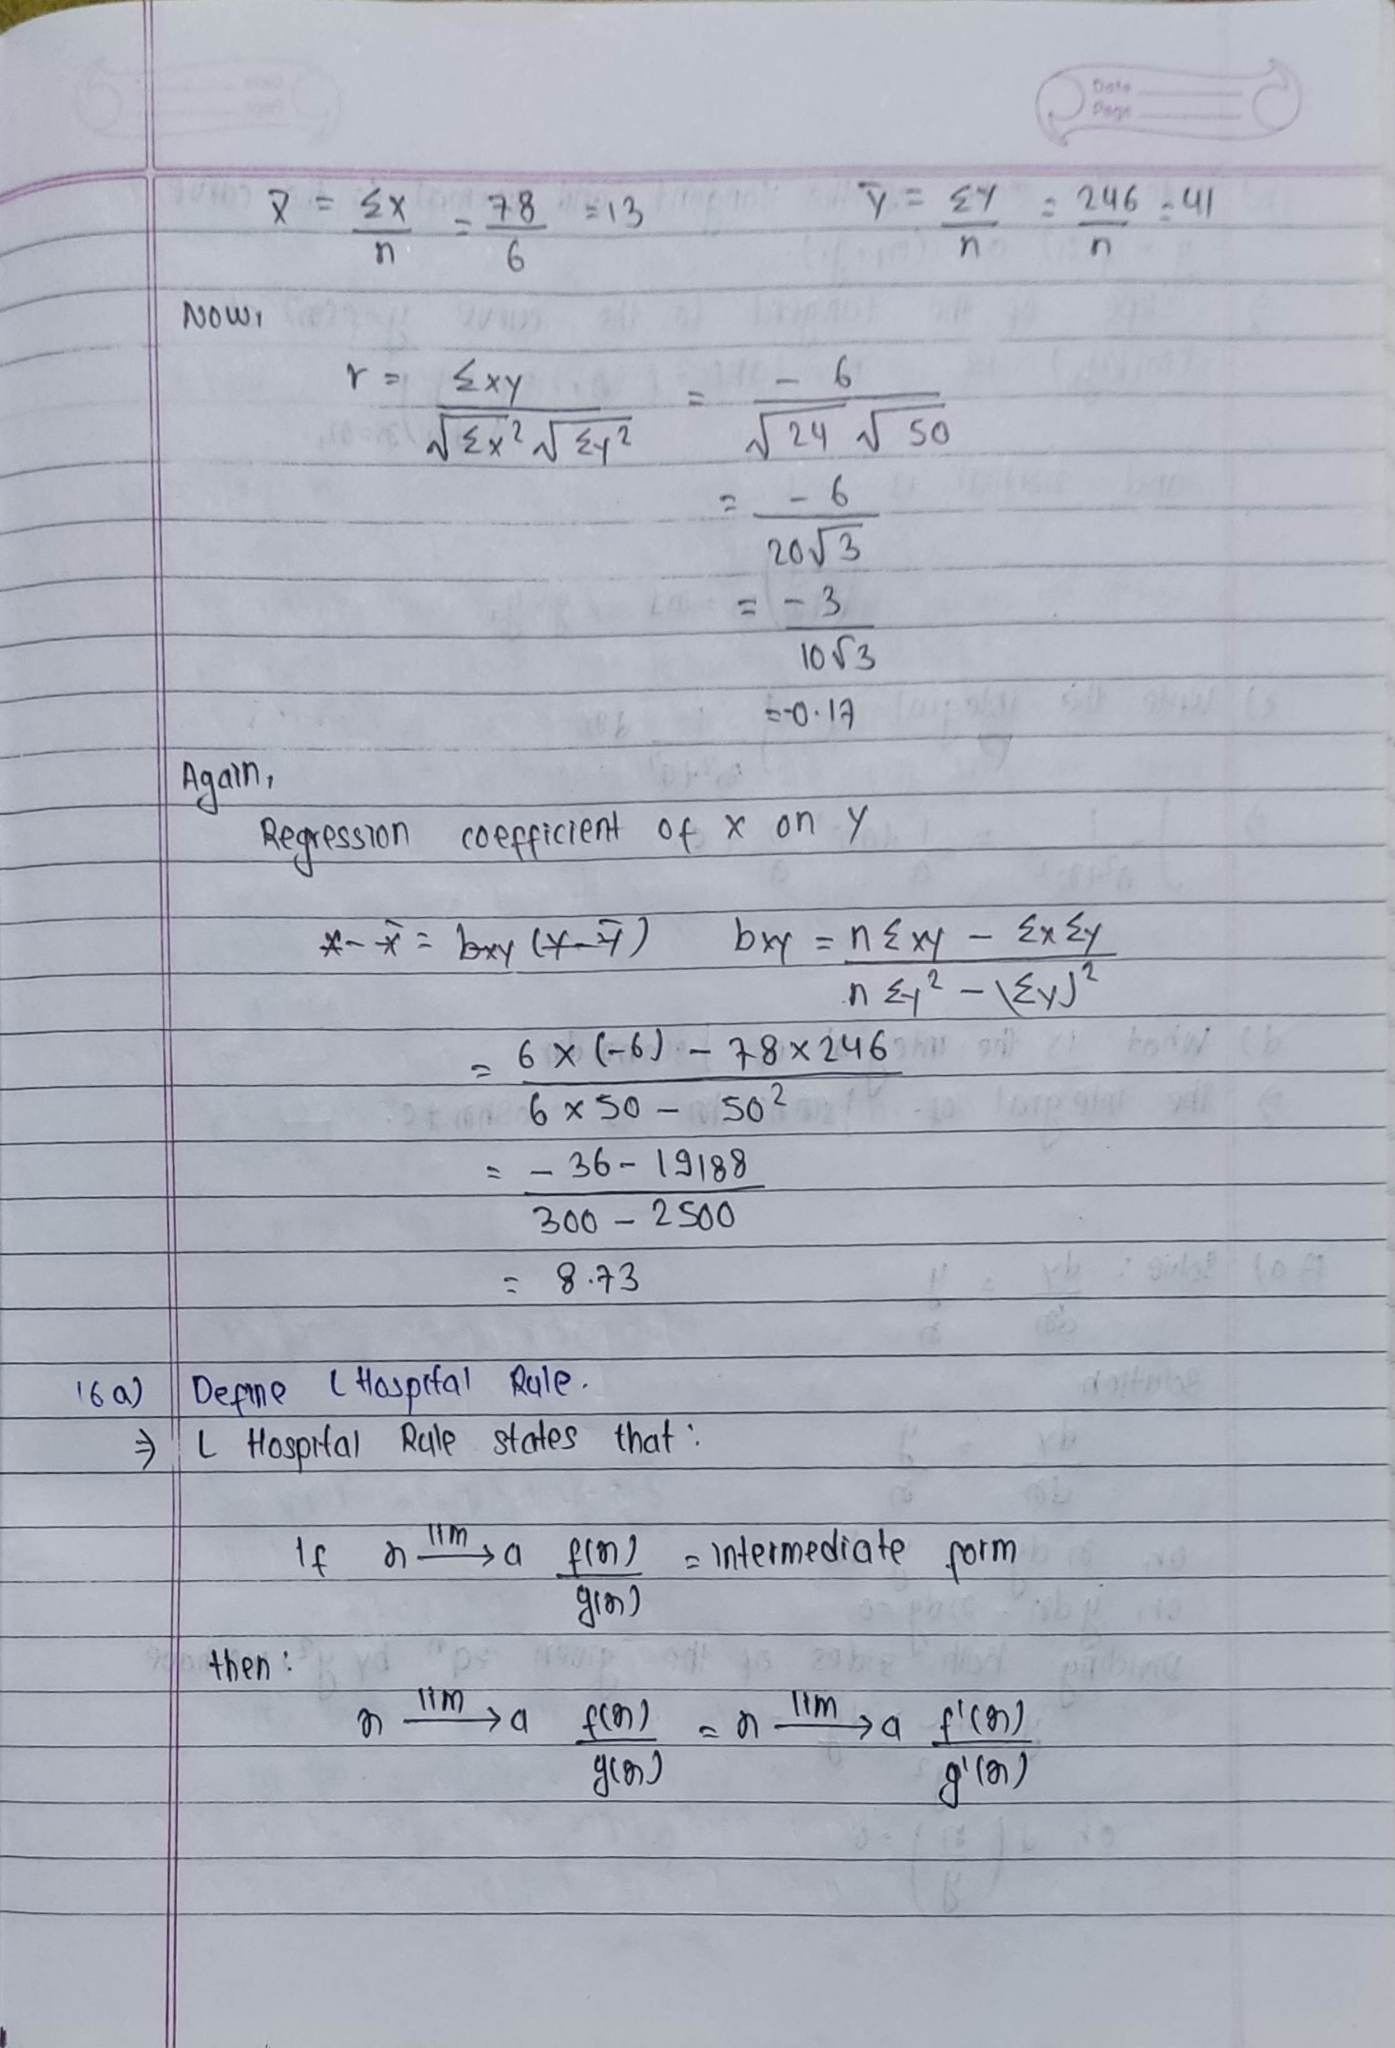 Date
Page
X̄ = Σx/n = 78/6 = 13   Ȳ = ΣY/n = 246/n = 41
Now,
r = Σxy/√Σx² √Σy² = - 6/√24 √50
= - 6/20√3
= - 3/10√3
= -0.17
Again,
Regression coefficient of x on y
x - x̄ = bxy (y - ȳ)   bxy = n Σxy - Σx Σy/n Σy² - (Σy)²
= 6 x (-6) - 78 x 246/6 x 50 - 50²
= - 36 - 19188/300 - 2500
= 8.73
16 a) Define L Hospital Rule.
⇒ L Hospital Rule states that :
If x lim→ a f(x)/g(x) = intermediate form
then :
x lim→ a f(x)/g(x) = x lim→ a f'(x)/g'(x)